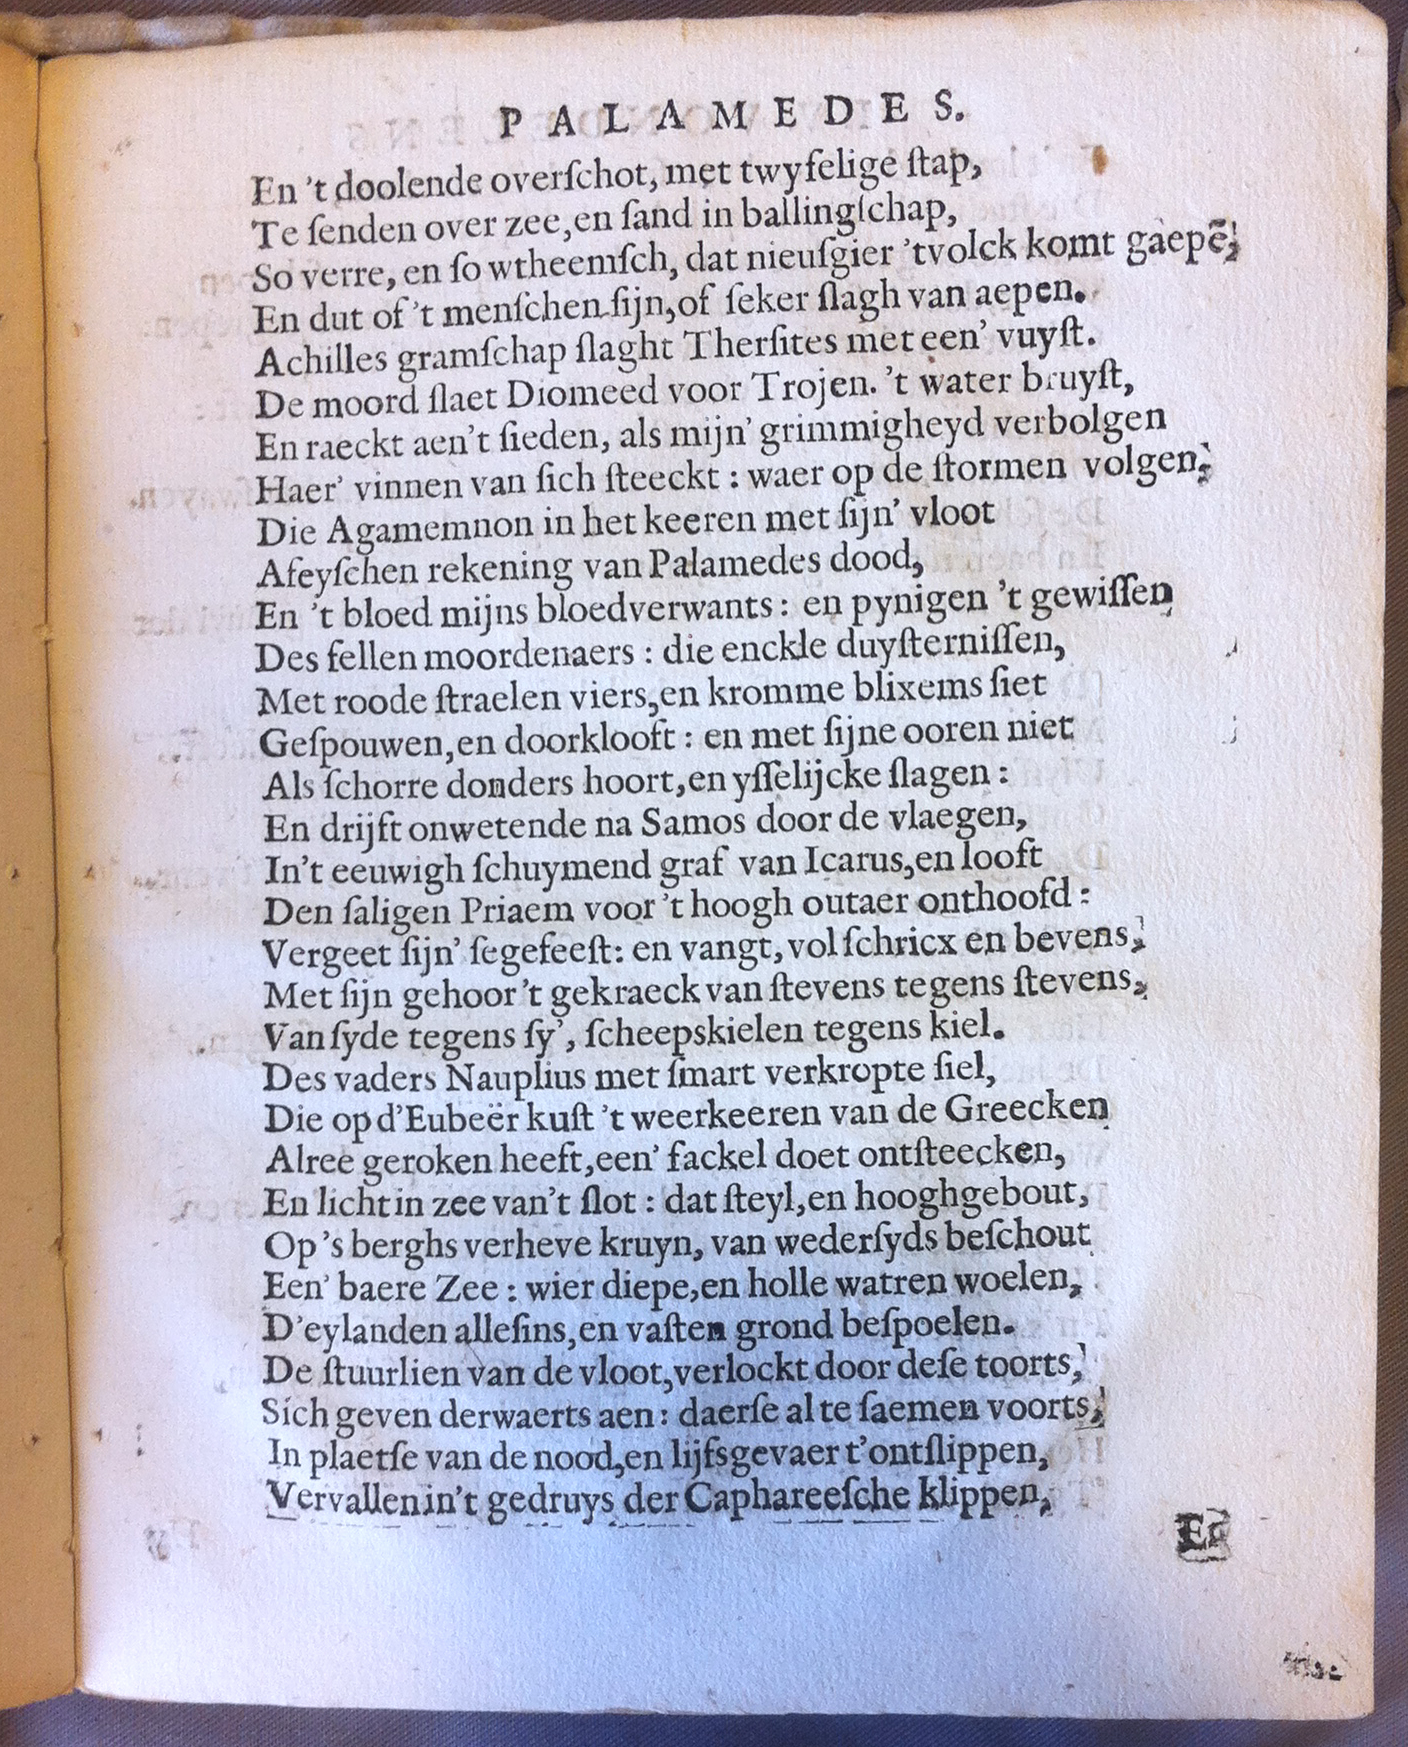 PALAMEDES.
En 't doolende overſchot, met twyfelige ſtap,
Te ſenden over zee, en ſand in ballingſchap,
So verre, en ſo wtheemſch, dat nieuſgier 'tvolck komt gaepē,
En dut of 't menſchen ſijn, of ſeker ſlagh van aepen.
Achilles gramſchap ſlaght Therſites met een' vuyſt.
De moord ſlaet Diomeed voor Trojen. 't water bruyſt,
En raeckt aen't ſieden, als mijn' grimmigheyd verbolgen
Haer' vinnen van ſich ſteeckt : waer op de ſtormen volgen,
Die Agamemnon in het keeren met ſijn' vloot
Afeyſchen rekening van Palamedes dood,
En 't bloed mijns bloedverwants : en pynigen 't gewiſſen
Des fellen moordenaers : die enckle duyſterniſſen,
Met roode ſtraelen viers, en kromme blixems ſiet
Geſpouwen, en doorklooft : en met ſijne ooren niet
Als ſchorre donders hoort, en yſſelijcke ſlagen :
En drijft onwetende na Samos door de vlaegen,
In't eeuwigh ſchuymend graf van Icarus, en looft
Den ſaligen Priaem voor 't hoogh outaer onthoofd :
Vergeet ſijn' ſegefeeſt: en vangt, vol ſchricx en bevens,
Met ſijn gehoor 't gekraeck van ſtevens tegens ſtevens,
Van ſyde tegens ſy', ſcheepskielen tegens kiel.
Des vaders Nauplius met ſmart verkropte ſiel,
Die op d'Eubeër kuſt 't weerkeeren van de Greecken
Alree geroken heeft, een' fackel doet ontſteecken,
En licht in zee van't ſlot : dat ſteyl, en hooghgebout,
Op 's berghs verheve kruyn, van wederſyds beſchout
Een' baere Zee : wier diepe, en holle watren woelen,
D'eylanden alleſins, en vaſten grond beſpoelen.
De ſtuurlien van de vloot, verlockt door deſe toorts,
Sich geven derwaerts aen: daerſe al te ſaemen voorts,
In plaetſe van de nood, en lijfsgevaer t'ontſlippen,
Vervallen in't gedruys der Caphareeſche klippen,
En